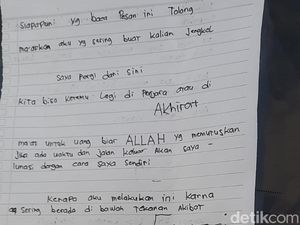 Siapapun yg baca Pesan ini Tolong
maafkan aku yg sering buat kalian Jengkol
Saya Pergi dari Sini
kita bisa ketemu Lagi di Penjara atau di
AKhirat
maaf untuk uang biar ALLAH yg memutuskan
Jika ada waktu dan Jalan keluar Akan saya -
lunasi dengan cara saya Sendiri
Kenapa aku melakukan ini karna
Sering berada di bawah Tekanan Akibat
detikcom